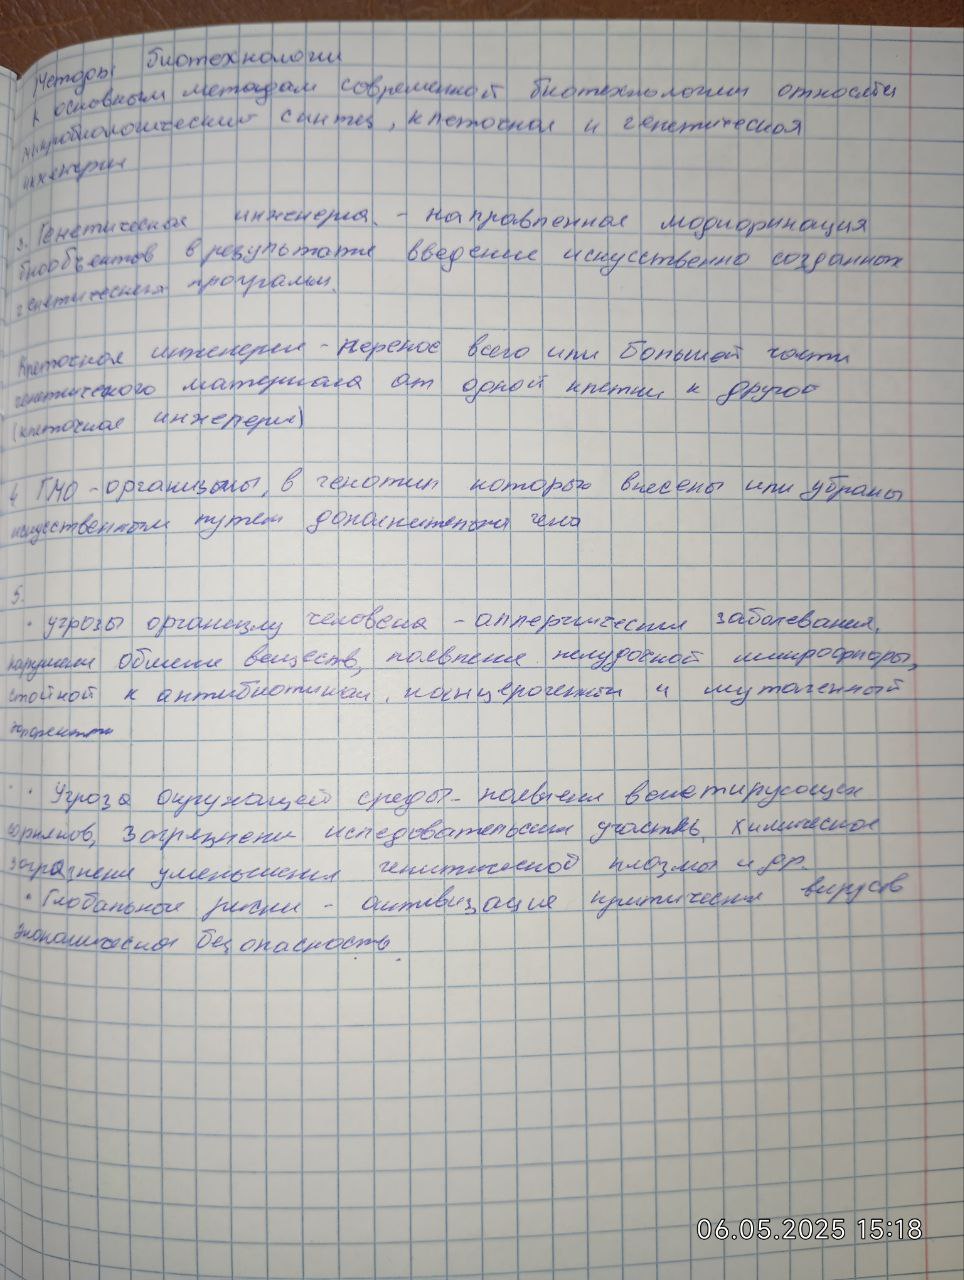 Методы биотехнологии
К основным методам современной биотехнологии относятся
микробиологический синтез, клеточная и генетическая
инженерии
3. Генетическая инженерия. - направленная модификация
биообъектов в результате введение искусственно созданных
генетических программ.
Клеточная инженерия - перенос всего или большей части
генетического материала от одной клетки к другой
(клеточная инженерия)
4 ГМО - организмы, в генотип которых внесены или убраны
искусственным путем дополнительных гена
5.
· угрозы организму человека - аллергические заболевания,
нарушения обмена веществ, появление желудочной микрофлоры,
стойкой к антибиотикам, канцерогенный и мутагенный
· Угроза окружающей среды - появление вегетирующих
сорняков, загрязнение исследовательских участков, химическое
загрязнение уменьшения генетической плазмы и др.
· Глобальные риски - активизация критических вирусов
экономическая безопасность.
06.05.2025 15:18